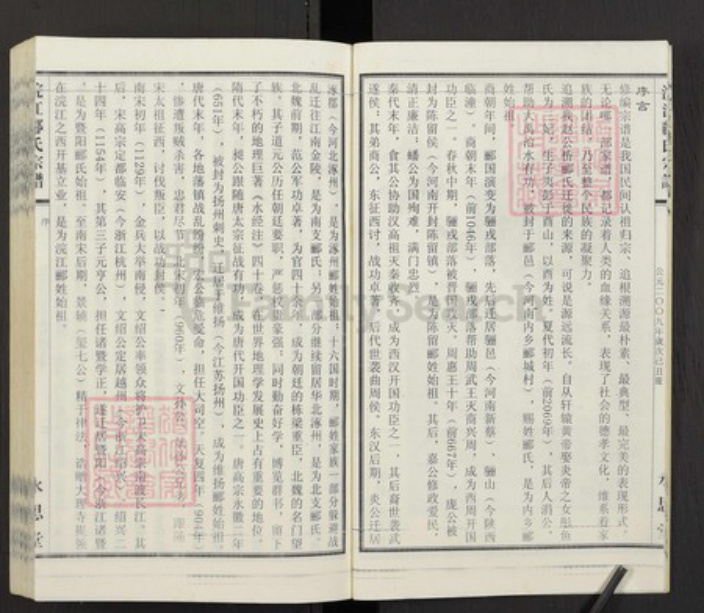 序言
修编宗谱是我国民间认祖归宗、追根溯源最朴素、最典型、最完美的表现形式。
无论哪一部家谱，都记录着人类的血缘关系，表现了社会的德孝文化，维系着家
族的团结，乃至整个民族的凝聚力。
追溯我赵公桥郦氏迁徙的来源，可说是源远流长。自从轩辕黄帝娶炎帝之女彤鱼
氏为二妃，生子夷彭于酉山，以酉为姓。夏代初年（前2069年），其后人涓公，
帮助大禹治水有功，被封于郦邑（今河南内乡郦城村），赐姓郦氏，是为内乡郦
姓始祖。
商朝年间，郦国演变为骊戎部落，先后迁居骊邑（今河南新蔡）、骊山（今陕西
临潼）。商朝末年（前1046年），骊戎部落帮助周武王灭商兴周，成为西周开国
功臣之一。春秋中期，骊戎部落被晋国攻灭。周惠王十年（前667年），庞公被
封为陈留侯（今河南开封陈留镇），是为陈留郦姓始祖。其后，嘉公修政爱民，
清正廉洁；蟠公为国殉难，满门忠烈。
秦代末年，食其公协助汉高祖灭秦收齐，成为西汉开国功臣之一，其后裔世袭武
遂侯；其弟商公，东征西讨，战功卓著，后代世袭曲周侯。东汉后期，炎公迁居
涿郡（今河北涿州），是为涿州郦姓始祖；十六国时期，郦姓家族一部分躲避战
乱迁往江南金陵，是为南支郦氏；另一部分继续留居华北涿州，是为北支郦氏。
北魏前期，范公军功卓著，为官四十余年，成为朝廷的栋梁重臣，北魏的名门望
族。其子道元公历任朝廷要职，严惩权臣豪强；同时勤奋好学，博览群书，留下
了不朽的地理巨著《水经注》四十卷，在世界地理学发展史上占有重要的地位。
隋代末年，昶公跟随唐太宗征战有功，成为唐代开国功臣之一。唐高宗永徽二年
（651年），被封为扬州刺史，迁居于维扬（今江苏扬州），成为维扬郦姓始祖。
唐代末年，各地藩镇战乱纷纷，宏公临危受命，担任大司空。天复四年（904年）
，惨遭叛贼杀害，忠君尽节。北宋初年（960年），文孙
宋太祖征西，讨伐叛臣，以战功封侯。
南宋初年（1129年），金兵大举南侵，文绍公率领众将护卫宋高宗南渡长江。其
后，宋高宗定都临安（今浙江杭州），文绍公定居越州（今浙江绍兴）。绍兴二
十四年（1154年），其第三子元亨公，担任诸暨学正，遂迁居暨阳（今浙江诸暨
，是为暨阳郦氏始祖。至南宋后期，景辅（玺七公）精于律法，诰赠大理寺
在浣江之西开基立业，是为浣江郦姓始祖。
浣江郦氏宗谱
序
永思堂
公元二〇〇九年岁次己丑
FamilySearch